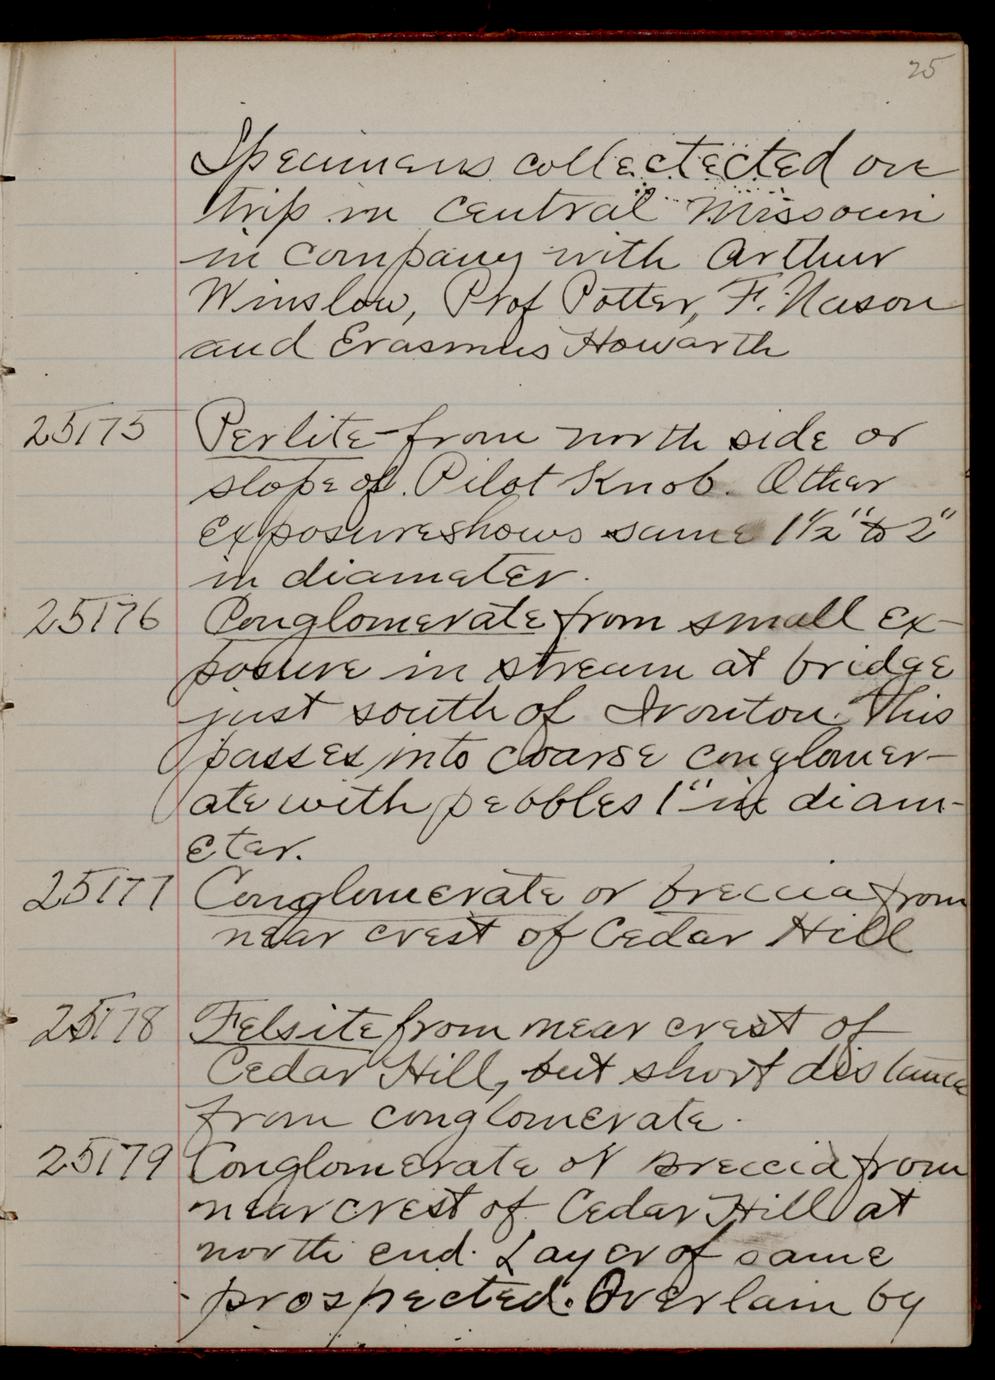 25
Specimens collectected on
trip in Central Missouri
in company with Arthur
Winslow, Prof Potter, F. Nason
and Erasmus Howarth
25175 Perlite from north side or
slope of Pilot Knob. Other
exposure shows same 1½" to 2"
in diameter.
25176 Conglomerate from small ex-
posure in stream at bridge
just south of Ironton. This
passes into coarse conglomer-
ate with pebbles 1" in diam-
eter.
25177 Conglomerate or breccia from
near crest of Cedar Hill
25178 Felsite from near crest of
Cedar Hill, but short distance
from conglomerate.
25179 Conglomerate or breccia from
near crest of Cedar Hill at
north end. Layer of same
prospected. Overlain by